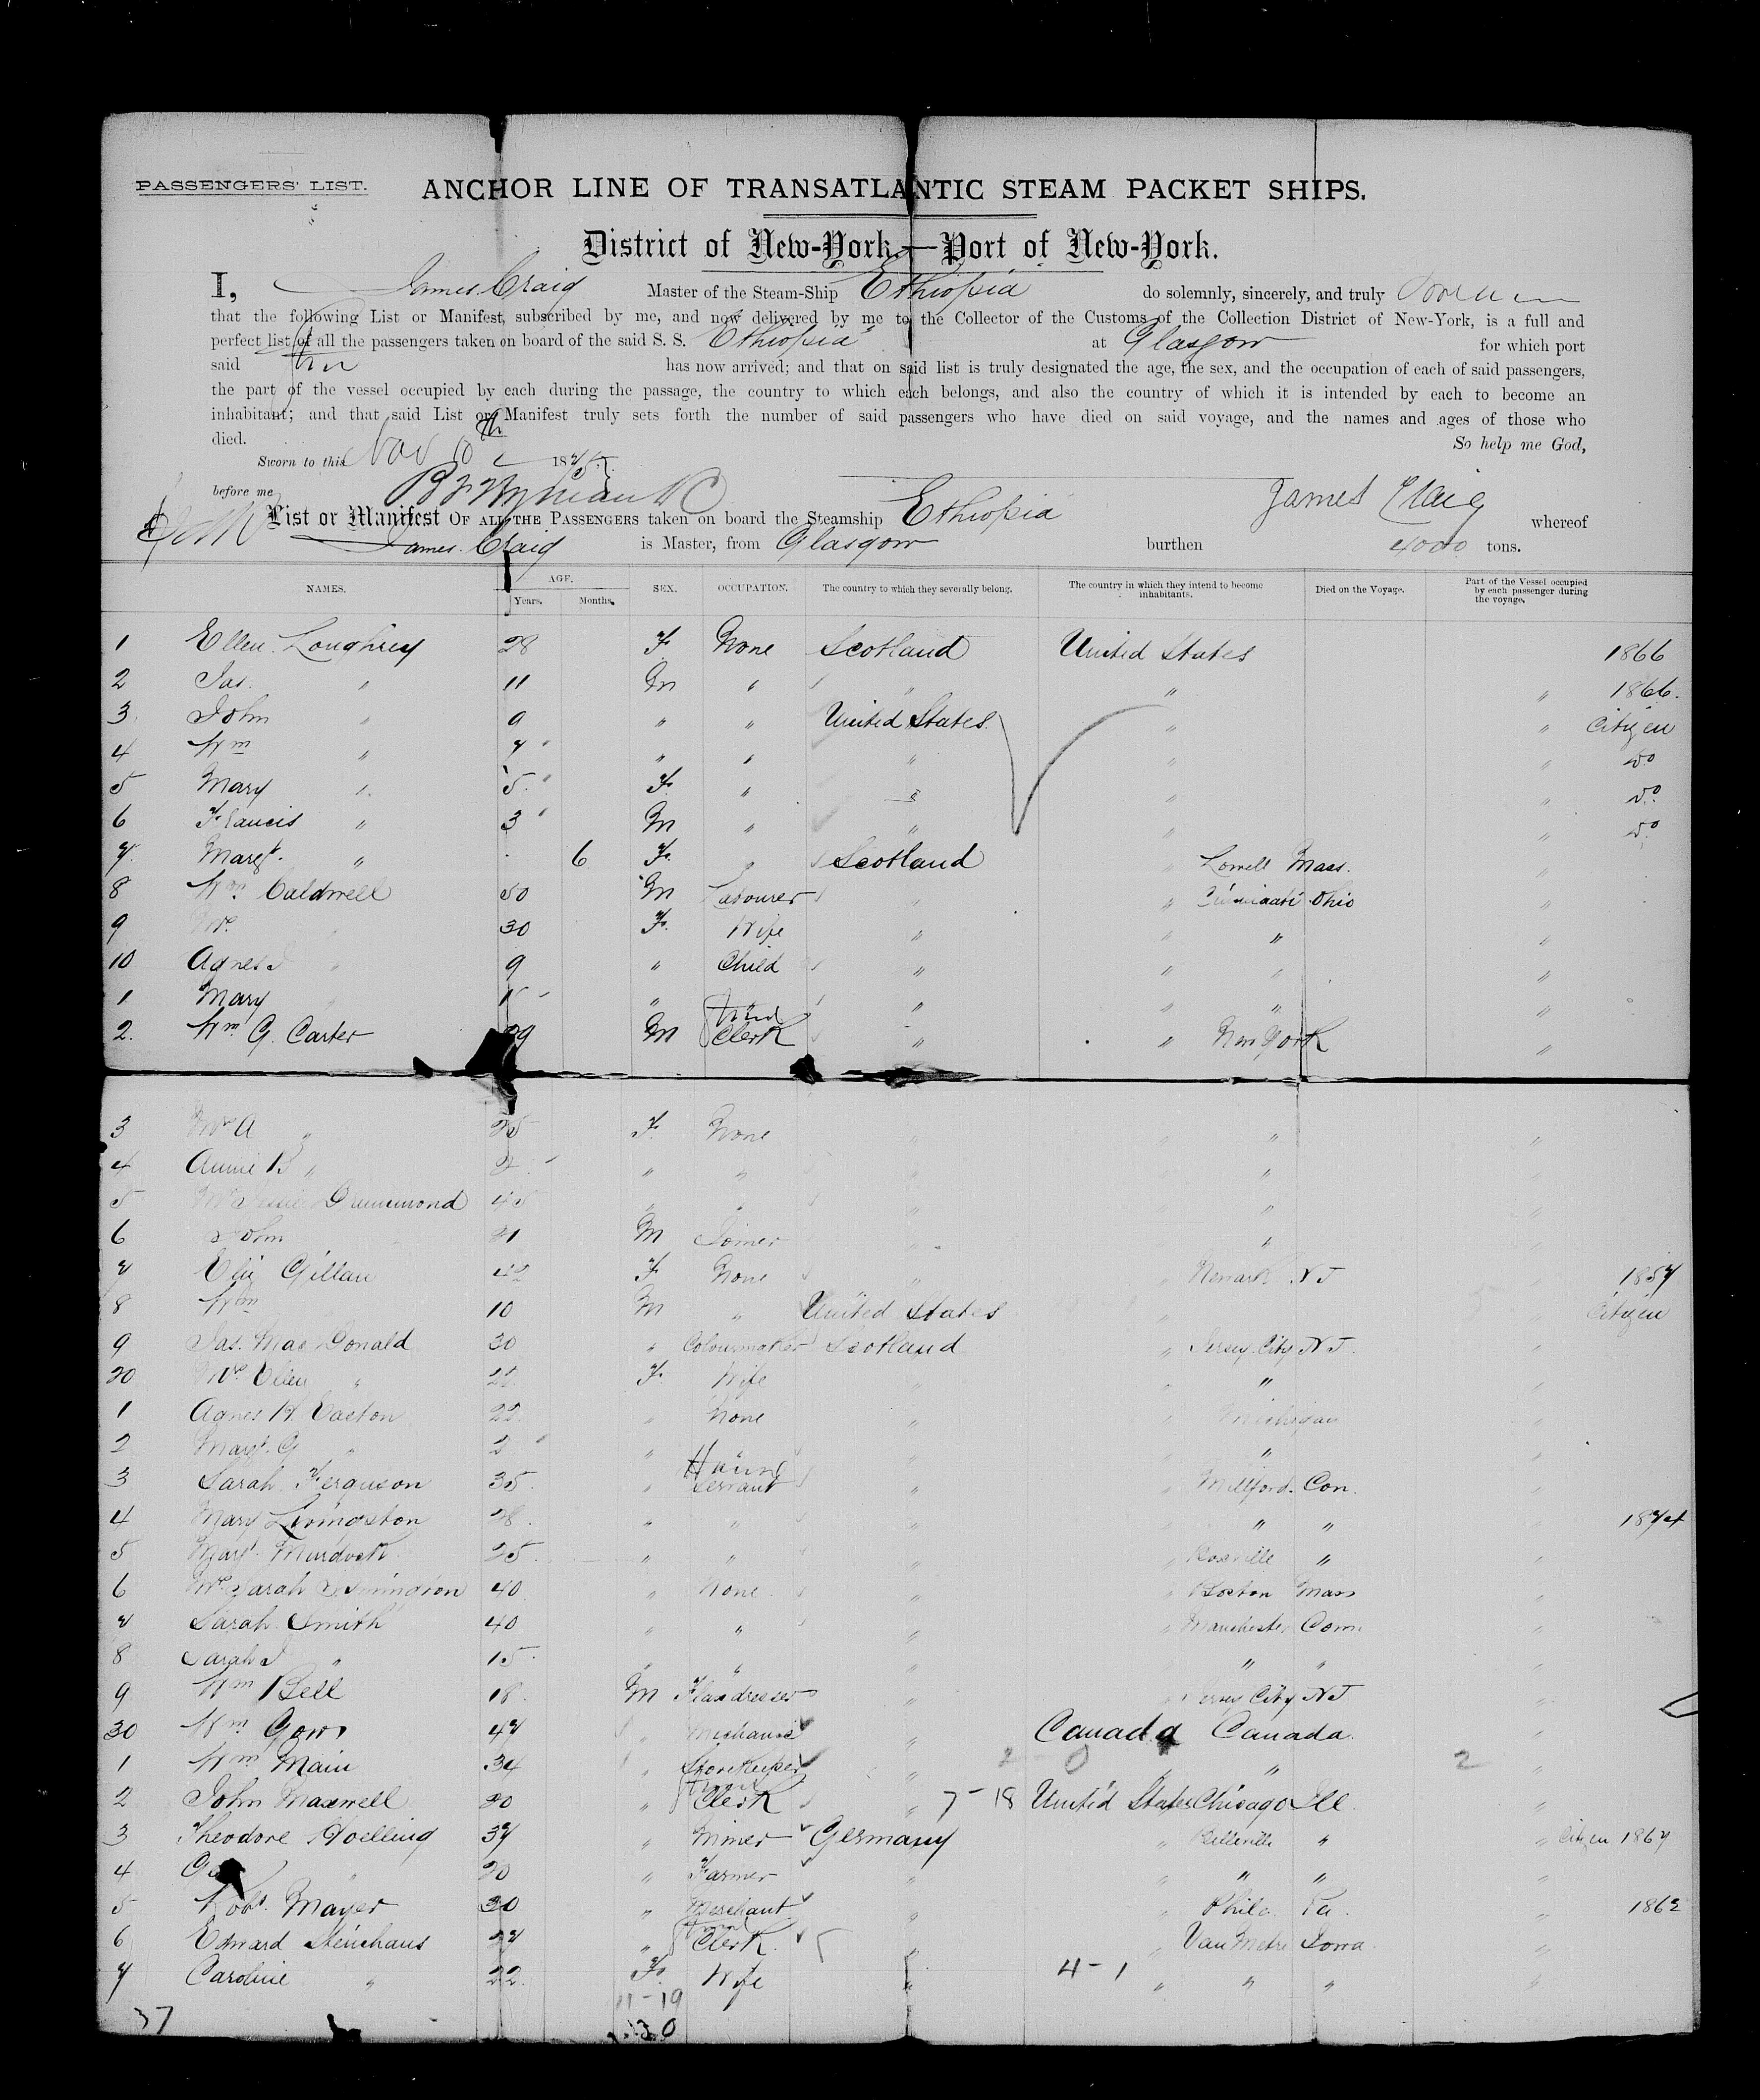 PASSENGERS' LIST.
ANCHOR LINE OF TRANSATLANTIC STEAM PACKET SHIPS.
District of New-York,—Port of New-York.
I, James Craig Master of the Steam-Ship Ethiopia do solemnly, sincerely, and truly
that the following List or Manifest, subscribed by me, and now delivered by me to the Collector of the Customs of the Collection District of New-York, is a full and
perfect list of all the passengers taken on board of the said S. S. Ethiopia at Glasgow for which port
said has now arrived; and that on said list is truly designated the age, the sex, and the occupation of each of said passengers,
the part of the vessel occupied by each during the passage, the country to which each belongs, and also the country of which it is intended by each to become an
inhabitant; and that said List or Manifest truly sets forth the number of said passengers who have died on said voyage, and the names and ages of those who
died. So help me God,
Sworn to this Nov 10th 1875
before me James Craig
List or Manifest OF ALL THE PASSENGERS taken on board the Steamship Ethiopia whereof
James Craig is Master, from Glasgow burthen 4000 tons.
NAMES. AGE. Years. Months. SEX. OCCUPATION. The country to which they severally belong. The country in which they intend to become inhabitants. Died on the Voyage. Part of the Vessel occupied by each passenger during the voyage.
1 Ellen Loughrey 28 F. None Scotland United States 1866
2 Jas. " 11 M " " " " 1866.
3 John " 9 " " United States " " Citizen
4 Wm " 7 " " " " " Do
5 Mary " 5 F. " " " " Do
6 Francis " 3 M " " " " Do
7. Margt. " 6 F. " Scotland " Lowell Mass. "
8 Wm Caldwell 50 M Labourer " " Cincinnati Ohio "
9 Mrs 30 F. Wife " " " "
10 Agnes J " 9 " Child " " " "
1 Mary " 1 " " " " "
2. Wm G. Carter 29 M Clerk " " New York "
3 Mrs A " 25 F. None " " " "
4 Annie B " 2 " " " "
5 Mrs Drummond 45 " " " "
6 John 21 M Joiner " "
7 Eliz Gillan 42 F None " " Newark NJ 1857
8 Wm 10 M " United States " Citizen
9 Jas. Mac Donald 30 " Colourmaker Scotland " Jersey City NJ. "
20 Mrs Ellen " 22 F. Wife " " "
1 Agnes H. Easton 22 " None " " Michigan "
2 Margt. G " 2 " " " " "
3 Sarah Ferguson 35 " Servant " " Millford Con. "
4 Mary Livingston 28 " " " " " " 1874
5 Margt. Murdock 25 " " " " Roseville " "
6 Mrs Sarah 40 " None " " Boston Mass "
7 Sarah Smith 40 " " " " Manchester Conn "
8 Sarah J " 15 " " " " "
9 Wm Bell 18 M Flaxdresser " " Jersey City NJ "
30 Wm Gow 47 " Mechanic " Canada Canada. "
1 Wm Main 34 " Storekeeper " " "
2 John Maxwell 20 " Clerk " 7-18 United States Chicago Ill. "
3 Theodore Hoelling 37 " Miner Germany " Belleville " " Citizen 1867
4 " 20 " Farmer " " " " "
5 Robt. Mayer 30 " Merchant " " Phila. Pa. " 1862
6 Edward Steinhaus 27 " Clerk. " " Van Metre Iowa. "
7 Caroline " 22 F. Wife " 4-1 " " " "
37 11-19